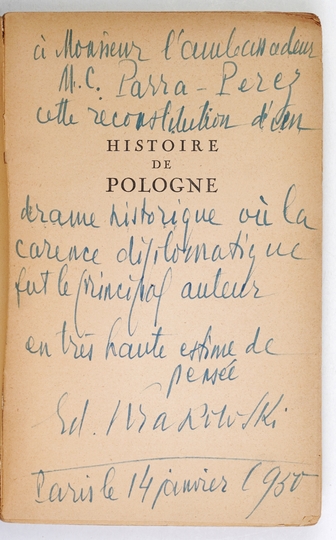 à Monsieur l'ambassadeur
M. C. Parra-Perez
cette reconstitution d'un
HISTOIRE
DE
POLOGNE
drame historique où la
carence diplomatique
fut le principal auteur
en très haute estime de
pensée
Ed. Krakowski
Paris le 14 janvier 1950